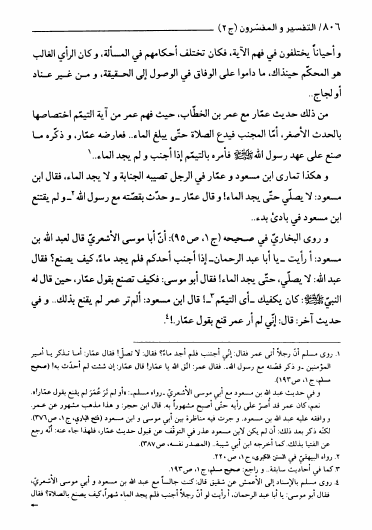 ٨٠٦/ التفسير و المفسّرون (ج٢)
و أحياناً يختلفون في فهم الآية، فكان تختلف أحكامهم في المسألة، و كان الرأي الغالب
هو المحكّم حينذاك، ما داموا على الوفاق في الوصول إلى الحقيقة، و من غير عناد
أو لجاج..
من ذلك حديث عمّار مع عمر بن الخطّاب، حيث فهم عمر من آية التيمّم اختصاصها
بالحدث الأصغر، أمّا المجنب فيدع الصلاة حتّى يبلغ الماء.. فعارضه عمّار، و ذكّره ما
صنع على عهد رسول الله ﷺ فأمره بالتيمّم إذا أجنب و لم يجد الماء..١
و هكذا تمارى ابن مسعود و عمّار في الرجل تصيبه الجنابة و لا يجد الماء، فقال ابن
مسعود: لا يصلّي حتّى يجد الماء! و قال عمّار ـ و حدّث بقصّته مع رسول الله ٢ـ و لم يقتنع
ابن مسعود في بادئ بدء..
و روى البخاري في صحيحه (ج١، ص٩٥): أنّ أبا موسى الأشعريّ قال لعبد الله بن
مسعود: أ رأيت ـ يا أبا عبد الرحمان ـ إذا أجنب أحدكم فلم يجد ماءً، كيف يصنع؟ فقال
عبد الله: لا يصلّي، حتّى يجد الماء! فقال أبو موسى: فكيف تصنع بقول عمّار، حين قال له
النبيّ ﷺ: كان يكفيك ـ أي التيمّم ـ٣! قال ابن مسعود: ألم تر عمر لم يقنع بذلك.. و في
حديث آخر: قال: إنّي لم أر عمر قنع بقول عمّار.!٤
١. روى مسلم أنّ رجلاً أتى عمر فقال: إنّي أجنبت فلم أجد ماءً؟ فقال: لا تصلّ! فقال عمّار: أما تذكر يا أمير
المؤمنين ـ و ذكر قصّته مع رسول الله ـ. فقال عمر: اتّق الله يا عمّار! قال عمّار: إن شئت لم أحدّث به! (صحيح
مسلم، ج١، ص١٩٣).
و في حديث عبد الله بن مسعود مع أبي موسى الأشعريّ ـ رواه مسلم ـ: «أو لم تَرَ عُمَرَ لم يقنع بقول عمّار».
نعم، كان عمر قد أصرّ على رأيه حتّى أصبح مشهوراً به. قال ابن حجر: و هذا مذهب مشهور عن عمر.
و وافقه عليه عبد الله بن مسعود. و جرت فيه مناظرة بين أبي موسى و ابن مسعود (فتح الباري، ج١، ص٣٧٦)
لكنّه ذكر بعد ذلك: أن لم يكن لابن مسعود عذر في التوقّف عن قبول حديث عمّار، فلهذا جاء عنه: أنّه رجع
عن الفتيا بذلك، كما أخرجه ابن أبي شيبة. (المصدر نفسه، ص٣٨٧).
٢. رواه البيهقيّ في السنن الكبرى، ج١، ص٢٢٠.
٣. كما في أحاديث سابقة.. و راجع: صحيح مسلم، ج١، ص١٩٣.
٤. روى مسلم بالإسناد إلى الأعمش عن شقيق قال: كنت جالساً مع عبد الله بن مسعود و أبي موسى الأشعريّ،
فقال أبو موسى: يا أبا عبد الرحمان، أ رأيت لو أنّ رجلاً أجنب فلم يجد الماء شهراً، كيف يصنع بالصلاة؟ فقال